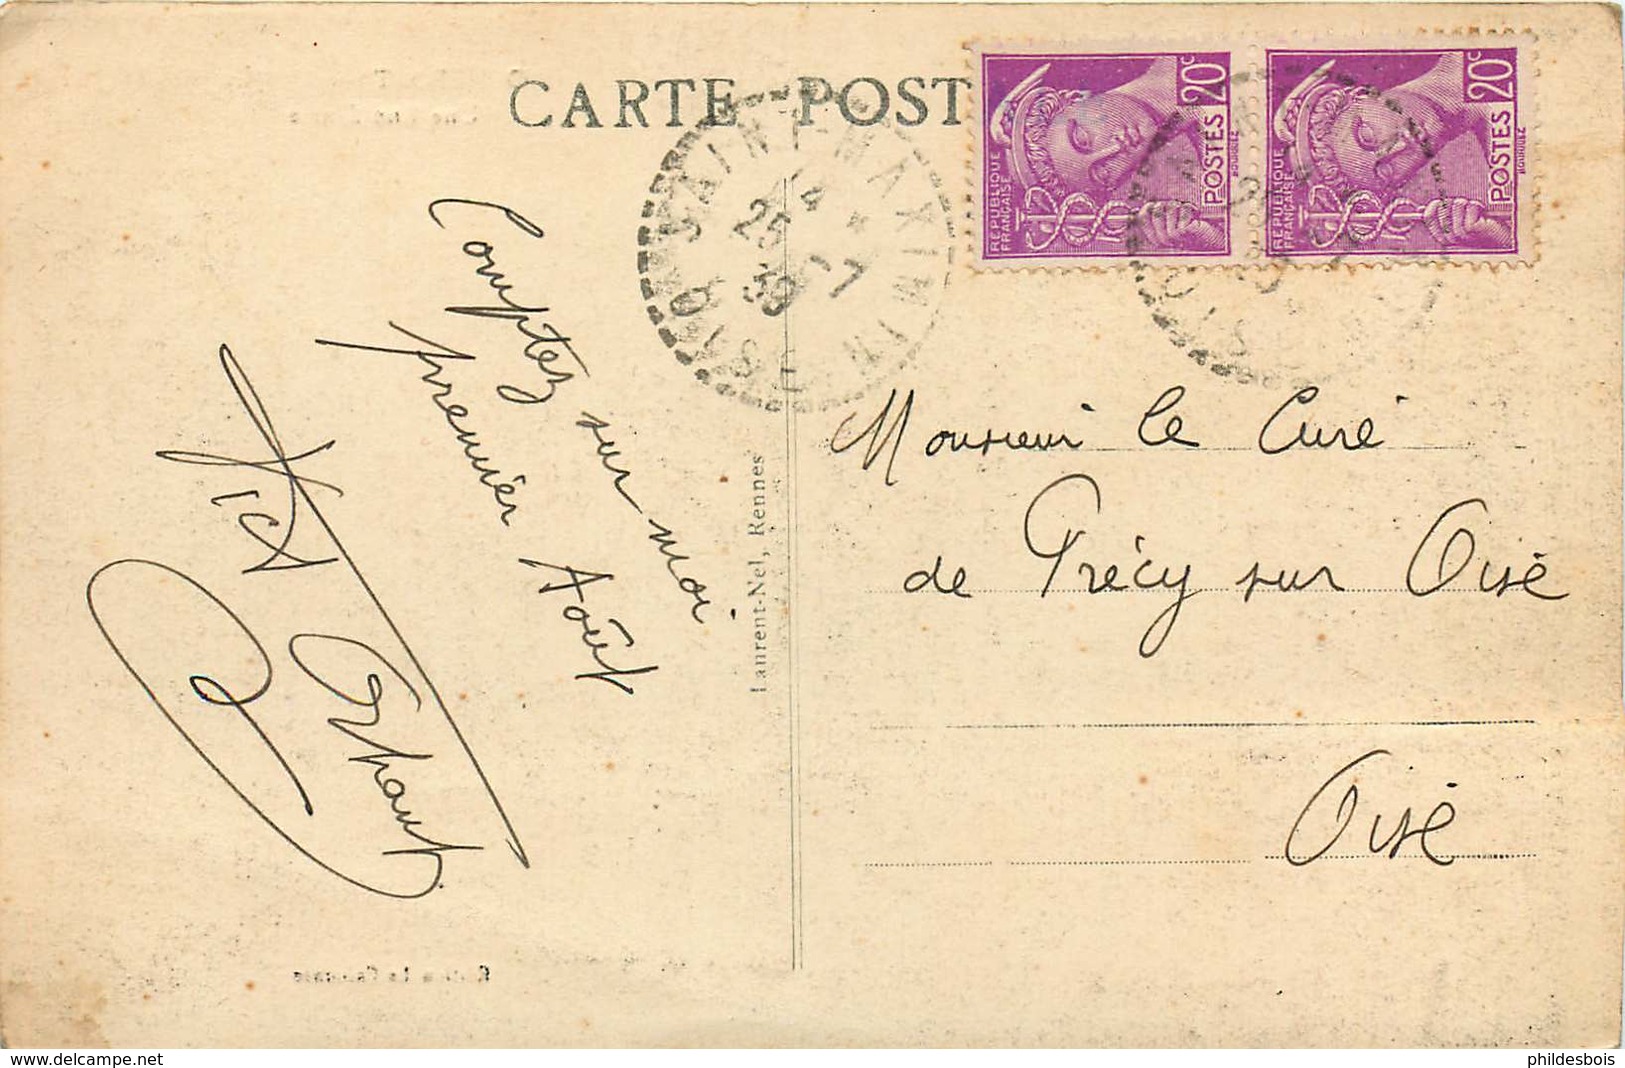 CARTE POST
SAINT-MAXIMIN
OISE
14 *
25 - 7
39
20c
POSTES
REPUBLIQUE
FRANÇAISE
20c
POSTES
REPUBLIQUE
FRANÇAISE
Comptez sur moi
premier Août
Laurent-Nel, Rennes
Monsieur le Curé
de Précy sur Oise
Oise
www.delcampe.net
phildesbois